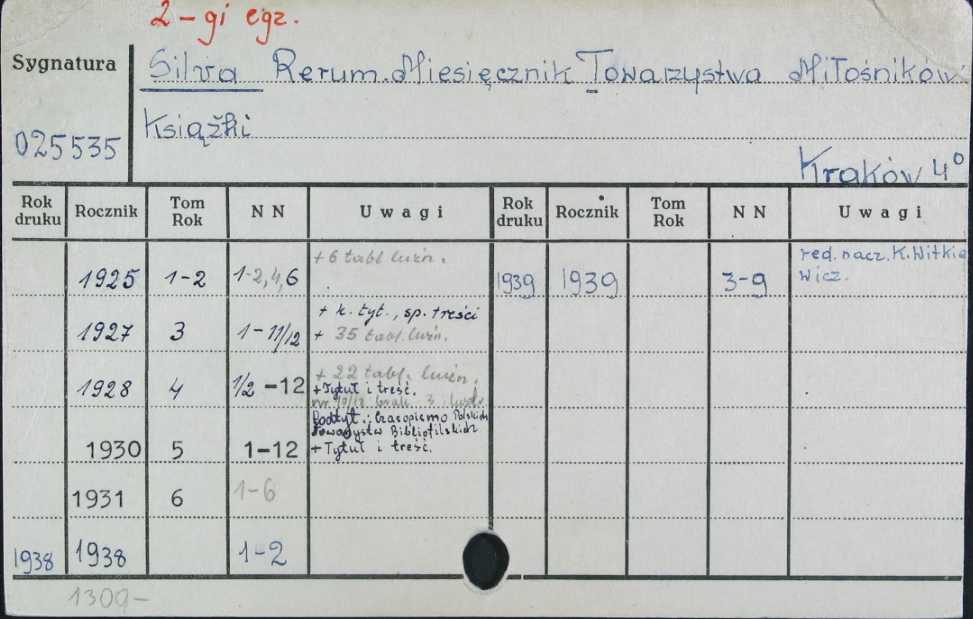 2-gi egz.
Sygnatura
Silva Rerum. Miesięcznik Towarzystwa Miłośników
Książki
025535
Kraków 4°
Rok druku Rocznik Tom Rok N N Uwagi Rok druku Rocznik Tom Rok N N Uwagi
+ 6 tabl. luźn.
red. nacz. K. Witkie
1925 1-2 1-2,4,6 1939 1939 3-9 wicz.
+ k. tyt., sp. treści
1927 3 1-11/12 + 35 tabl. luźn.
+ 22 tabl. luźn.
1928 4 1/2-12 + Tytuł i treść.
nr 10/12 brak 3
Podtyt.: Czasopismo Polskich
Towarzystw Bibliofilskich
1930 5 1-12 + Tytuł i treść.
1931 6 1-6
1938 1938 1-2
1309-